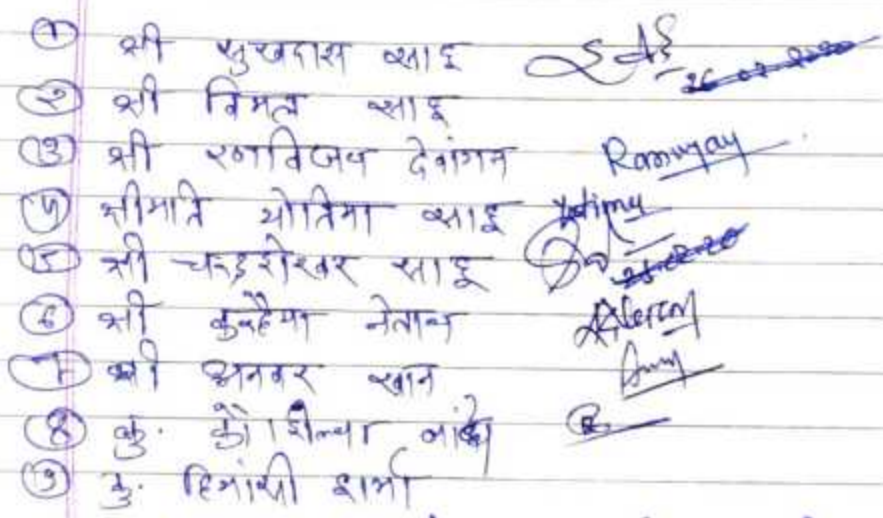 ① श्री सुखदास साहू 26 02 2020
② श्री विमल साहू
③ श्री रणविजय देवांगन Ranvijay
④ श्रीमति योतिमा साहू Yotima
⑤ श्री चन्द्रशेखर साहू
⑥ श्री कुन्हैया नेताम
⑦ श्री अनवर खान
⑧ कु. कौशिल्या बांधे
⑨ कु. हिमांसी शर्मा